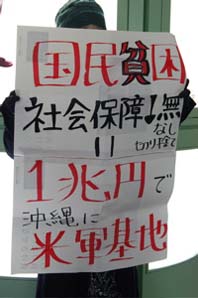 国民貧困
社会保障↓無
なし
切り捨て
=
1兆円で
沖縄に
米軍基地